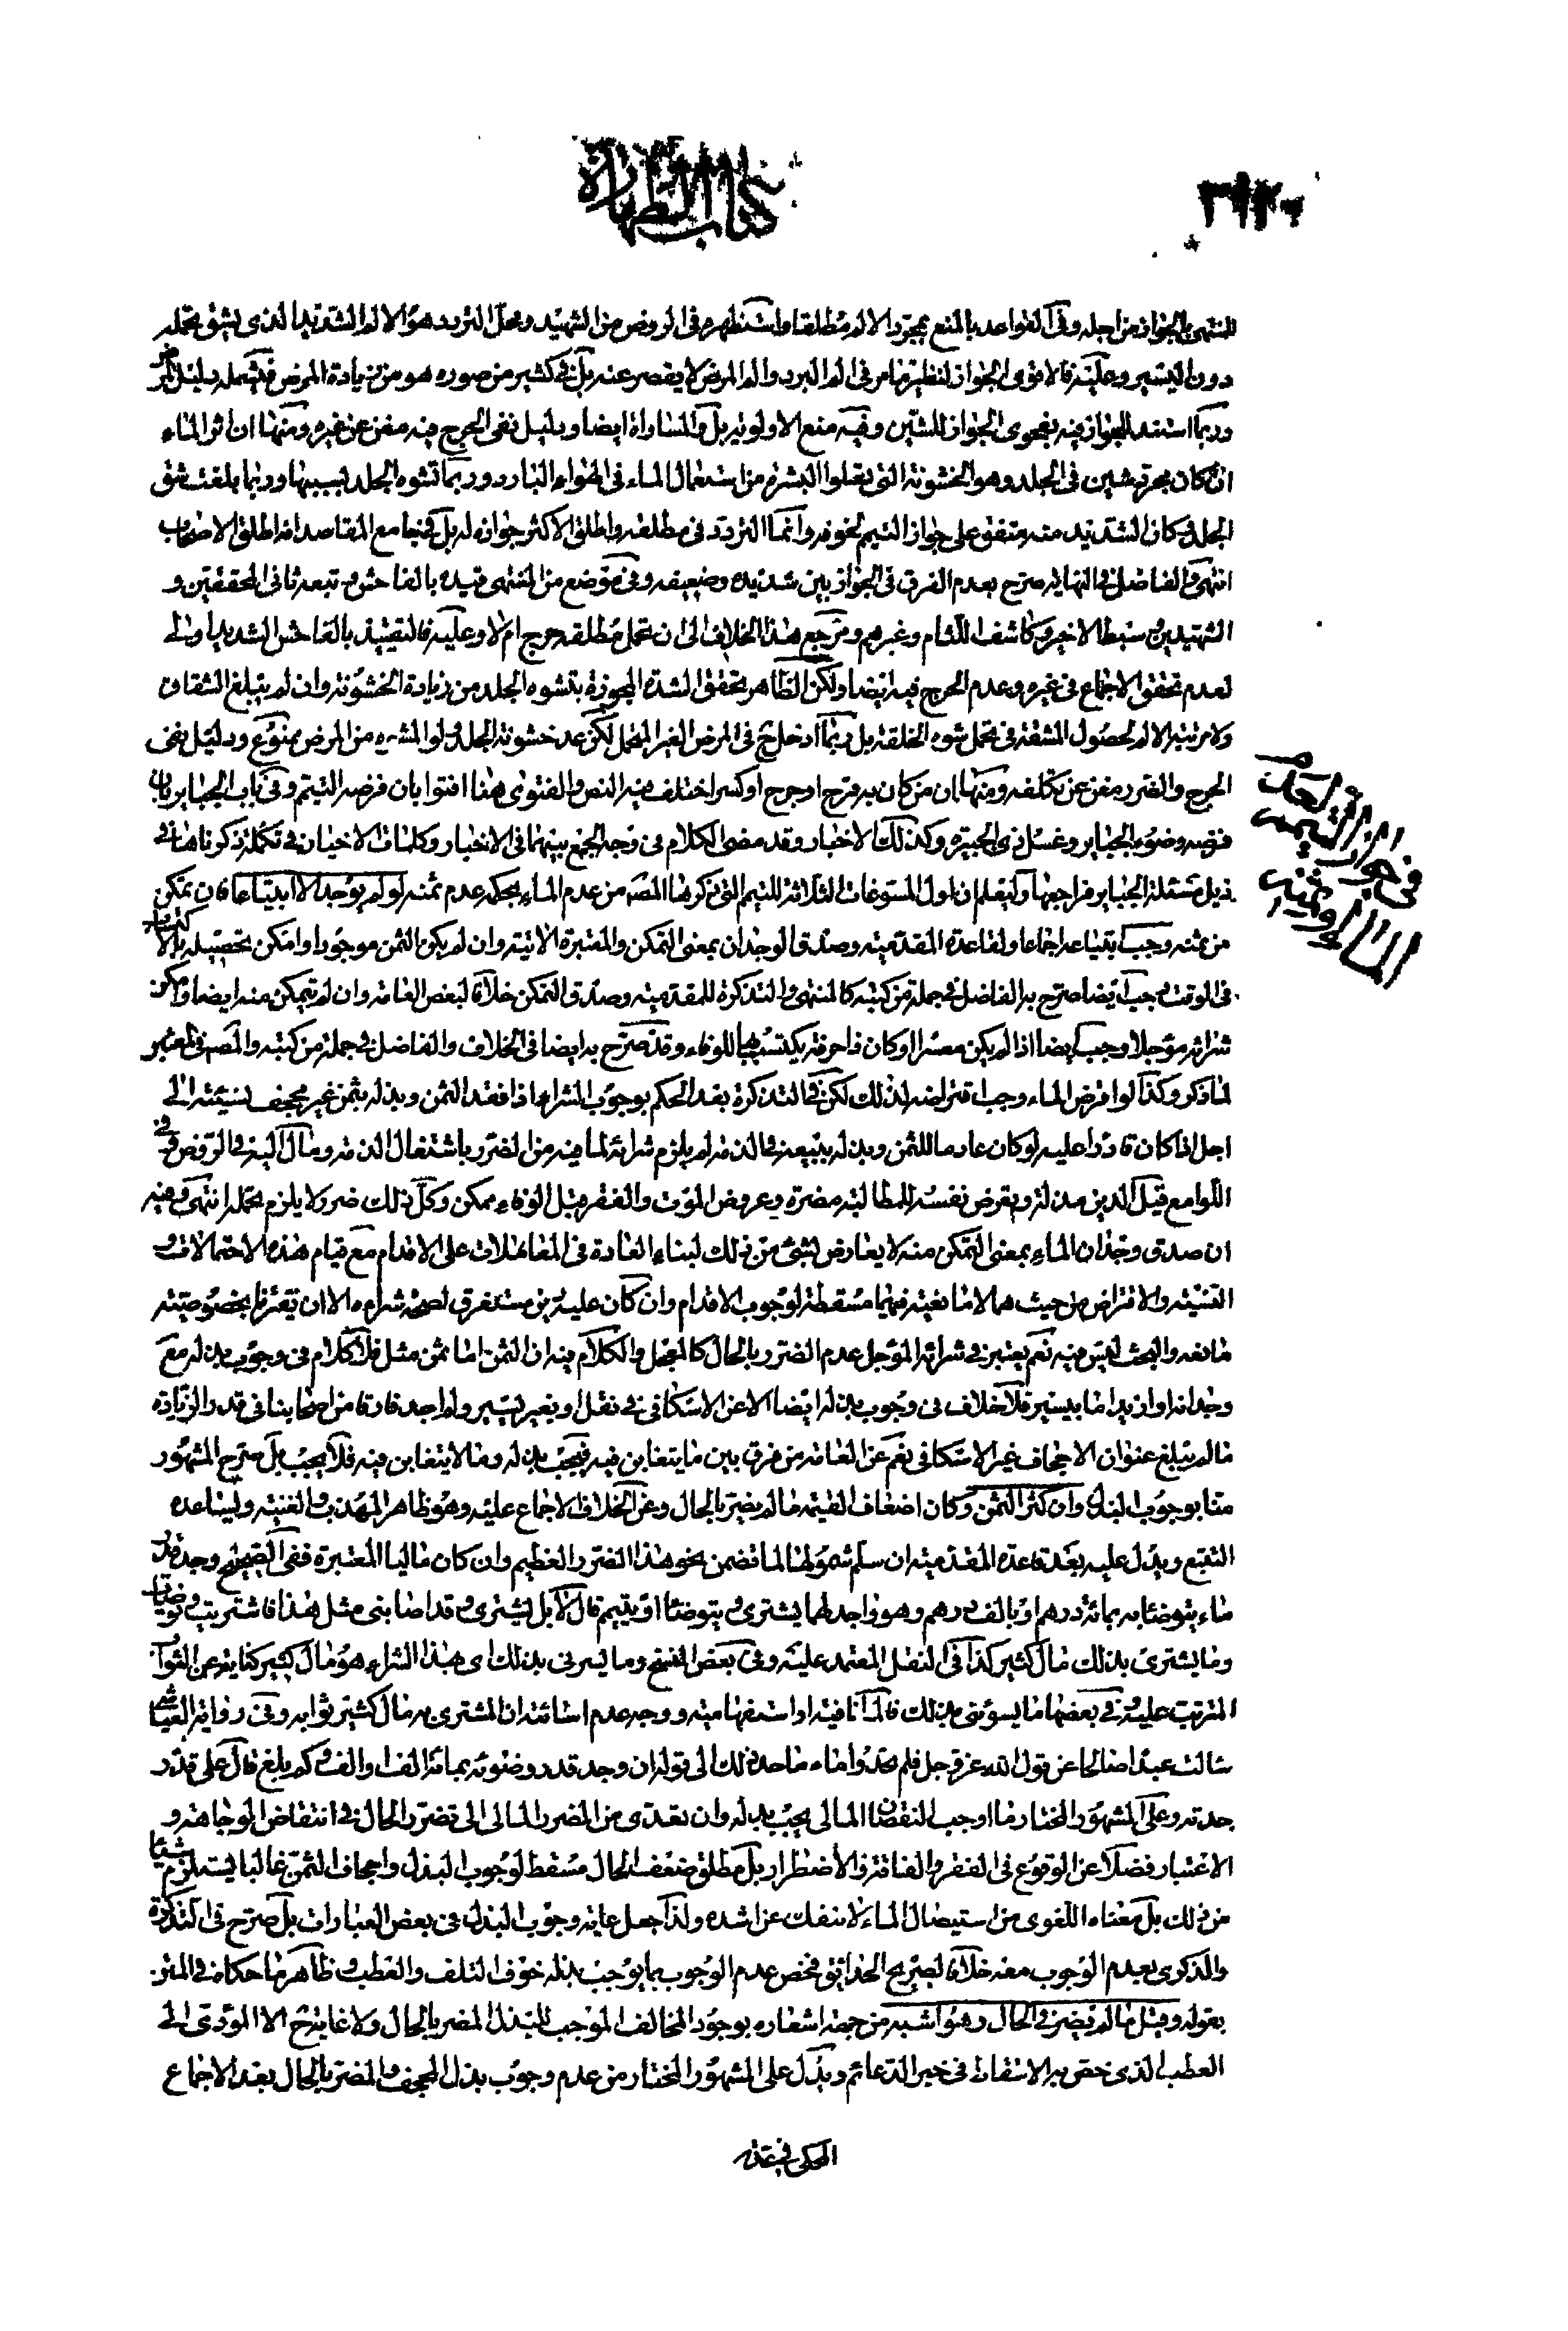 كتاب الطهارة
للمنتهى بالجواز من اجله وفى القواعد بالمنع بمجرد الالم مطلقا واستظهره فى الروض من الشهيد ومحل التردد هو الالم الشديد الذى يشق تحمله
دون اليسير وعليه فالاقوى الجواز لنظير ما مر فى الم البرد والم المرض لا يقصر عنه بل فى كثير من صوره هو من زيادة المرض فيشمله دليل
وربما استند للجواز فيه بفحوى الجواز للشين وفيه منع الاولوية بل والمساواة ايضا ودليل نفى الحرج فيه مغن عن غيره ومنها ان اثر الماء
ان كان مجرد شين فى الجلد وهو الخشونة التى تعلوا البشرة من استعمال الماء فى الهواء البارد وربما تشوه الجلد بسببها وربما بلغت شق
الجلد فكان الشديد منه متفق على جواز التيمم لخوفه وانما التردد فى مطلقه واطلق الاكثر جوازه له بل فى جامع المقاصد انه اطلق الاصحاب
انتهى والفاضل فى النهاية صرح بعدم الفرق فى الجواز بين شديده وضعيفه وفى موضع من المنتهى قيده بالفاحش وتبعه ثانى المحققين و
الشهيدين وسبطا الاخير وكاشف اللثام وغيرهم ومرجع هذا الخلاف الى ان تحمل مطلقه حرج ام لا وعليه فالتقييد بالفاحش الشديد اولى
لعدم تحقق الاجماع فى غيره وعدم الحرج فيه ايضا ولكن الظاهر تحقق الشدة المجوزة بتشوه الجلد من زيادة الخشونة وان لم يبلغ الشقاق
ولا مرتبة الالم لحصول المشقة فى تحمل شوه الخلقة بل ربما ادخل ح فى المرض الغير المتحمل لكن عد خشونة الجلد ولو المشوه من المرض ممنوع ودليل نفى
الحرج والضرر مغن عن تكلفه ومنها ان من كان به قرح او جرح او كسر اختلف فيه النص والفتوى هنا افتوا بان فرضه التيمم وفى باب الجباير بان
فرضه وضوء الجباير وغسل ذى الجبيرة وكذلك الاخبار وقد مضى الكلام فى وجه الجمع بينهما فى الاخبار وكلمات الاخيار فى تكملة ذكرناها فى
ذيل مسئلة الجباير فراجعها وليعلم ان اول المسوغات الثلاثة للتيمم التى ذكرها المصه من عدم الماء بحكمه عدم ثمنه لو لم يوجد الا ابتياعا فان تمكن
من ثمنه وجب ابتياعه اجماعا ولقاعدة المقدمية وصدق الوجدان بمعنى التمكن والمعتبرة الاتية وان لم يكن الثمن موجودا وامكن تحصيله بالاكتساب
فى الوقت وجب ايضا صرح به الفاضل فى جملة من كتبه كالمنتهى والتذكرة للمقدمية وصدق التمكن خلافا لبعض العامة وان لم يتمكن منه ايضا وامكن
شرائه مؤجلا وجب ايضا اذا لم يكن معسرا او كان ذا حرفة يكتسب بها للوفاء وقد صرح به ايضا فى الخلاف والفاضل فى جملة من كتبه والمصه فى المعتبر
لما ذكر وكذا لو اقرض الماء وجب اقتراضه لذلك لكن فى التذكرة بعد الحكم بوجوب الشراء اذا فقد الثمن وبذله بثمن غير مجحف نسيئة الى
اجل اذا كان قادرا عليه لو كان عادما للثمن وبذله ببيعه فى الذمة لم يلزم شرائه لما فيه من الضرر باشتغال الذمة ومال اليه فى الروض وفى
اللوامع قيل الدين مذلة وتعرض نفسه للمطالبة مضرة وعروض الموت والفقر قبل الوفاء ممكن وكل ذلك ضرر لا يلزم تحمله انتهى وفيه
ان صدق وجدان الماء بمعنى التمكن منه لا يعارض بشئ من ذلك لبناء العادة فى المعاملات على الاقدام مع قيام هذه الاحتمالات و
النسيئة والاقتراض من حيث هما لا مانعية فيهما مسقطة لوجوب الاقدام وان كان عليه دين مستغرق لصحة شراءه الا ان يعترفا بخصوصيته
مانعه والبحث ليس فيه نعم يعتبر فى شرائه المؤجل عدم الضرر بالحال كالمعجل والكلام فيه ان الثمن اما ثمن مثل فلا كلام فى وجوب بذله مع
وجدانه او ازيد اما بيسير فلا خلاف فى وجوب بذله ايضا الا عن الاسكافى فى نقل او بغير يسير ولم اجد فارقا من اصحابنا فى قدر الزيادة
ما لم يبلغ عنوان الاجحاف غير الاسكافى نعم عن العامة من فرق بين ما يتغابن فيه فيجب بذله وما لا يتغابن فيه فلا يجب بل صرح المشهور
منا بوجوب البذل وان كثر الثمن وكان اضعاف القيمة ما لم يضر بالحال وعن الخلاف الاجماع عليه وهو ظاهر المهذب والغنية ويساعده
التتبع ويدل عليه بعد قاعدة المقدمية ان سلم شمولها لما تضمن نحو هذا الضرر العظيم وان كان ماليا المعتبرة ففى الصحيح وجد قدر
ماء يتوضئا به بمائة درهم او بالف درهم وهو واجد لها يشترى ويتوضئا او يتيمم قال لا بل يشترى قد اصابنى مثل هذا فاشتريت وتوضئات
وما يشترى بذلك مال كثير كذا فى النقل المعتمد عليه وفى بعض النسخ وما يسرنى بذلك اى هذا الشراء هو مال كثير كناية عن الثواب
المترتب عليه وفى بعضها ما يسوئنى بذلك فالما نافية او استفهامية ووجه عدم اسائته ان المشترى به مال كثير ثوابه وفى رواية العياشى
سالت عبدا صالحا عن قول الله عز وجل فلم تجدوا ماء ما حد ذلك الى قوله ان وجد قدر وضوئه بمائة الف والف وكم بلغ قال على قدر
جدته وعلى المشهور المختار ما اوجب النقصان المالى يجب بذله وان تعدى من الضرر المالى الى تضرر الحال فى انتقاض الوجاهة و
الاعتبار فضلا عن الوقوع فى الفقر والفاقة والاضطرار بل مطلق ضعف الحال مسقط لوجوب البذل واجحاف الثمن غالبا يستلزم شيئا
من ذلك بل معناه اللغوى من استيصال الماء لا ينفك عن اشده ولذا جعل غاية وجوب البذل فى بعض العبارات بل صرح فى التذكرة
والذكرى بعدم الوجوب معه خلافا لصريح الحدائق فخص عدم الوجوب بما يوجب بذله خوف التلف والعطب وظاهر ما حكاه فى المتن
بقوله وقيل ما لم يضر فى الحال وهو اشبه من جهة اشعاره بوجود المخالف الموجب للبذل المضر بالحال ولا غاية ح الا المؤدى الى
العطب الذى خص به الاسقاط فى خير الدعائم ويدل على المشهور المختار من عدم وجوب بذل المجحف والمضر بالحال بعد الاجماع
المحكى فى عدة